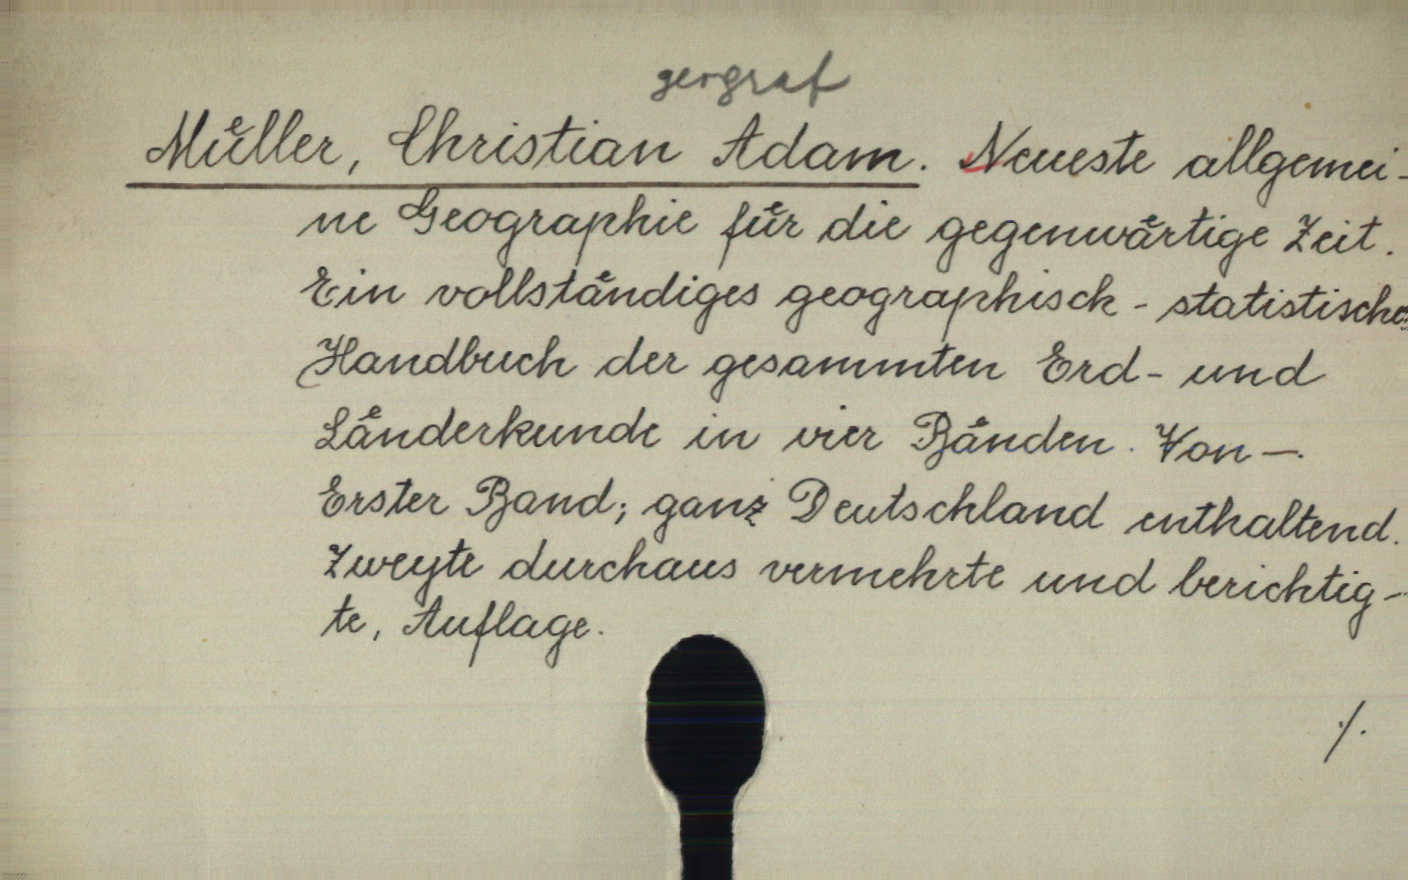 geograf
Muͤller, Christian Adam. Neueste allgemei-
ne Geographie fuͤr die gegenwaͤrtige Zeit.
Ein vollstaͤndiges geographisch - statistisches
Handbuch der gesammten Erd- und
Laͤnderkunde in vier Baͤnden. Von —.
Erster Band; ganz Deutschland enthaltend.
Zweyte durchaus vermehrte und berichtig-
te, Auflage.
./.